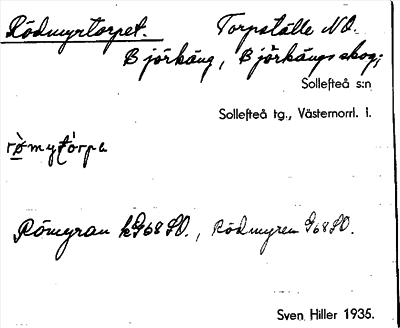 Rödmyrtorpet. Torpställe NO.
Björkäng, Björkängs skog;
Sollefteå s:n
Sollefteå tg., Västernorrl. l.
rö̀myt́órpa
Römyran kG68SO., Rödmyren G68SO.
Sven Hiller 1935.